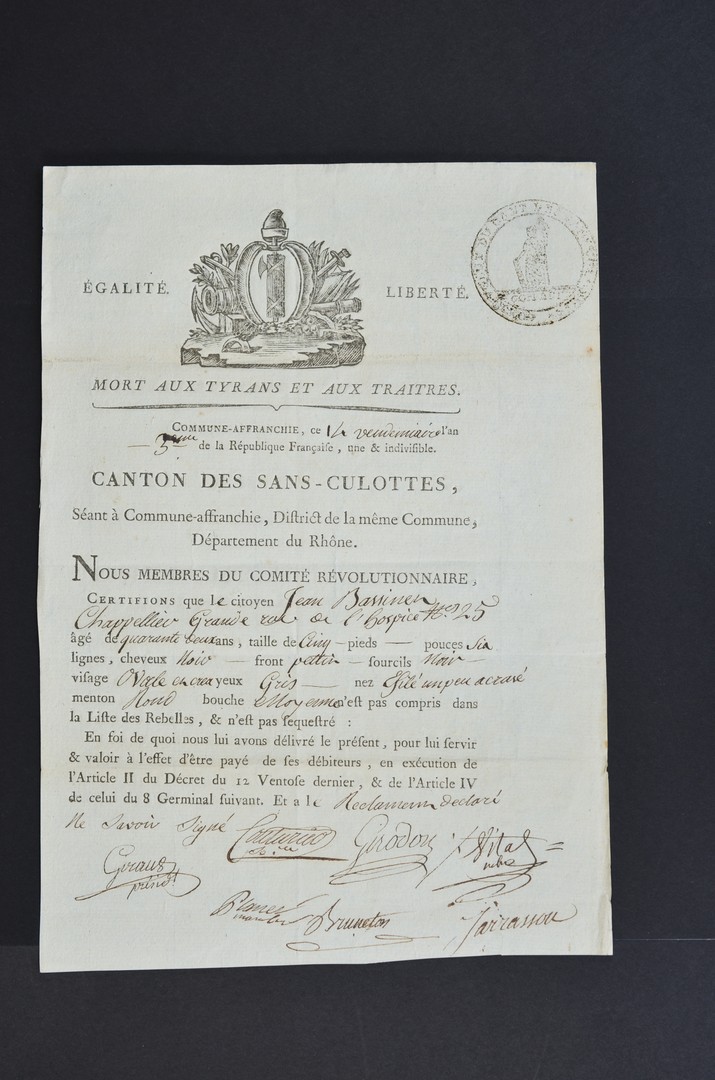 ÉGALITÉ. LIBERTÉ.
MORT AUX TYRANS ET AUX TRAITRES.
COMMUNE-AFFRANCHIE, ce 14 vendemiaire l'an
3eme de la République Françaiſe, une & indiviſible.
CANTON DES SANS-CULOTTES,
Séant à Commune-affranchie, Diſtrict de la même Commune,
Département du Rhône.
NOUS MEMBRES DU COMITÉ RÉVOLUTIONNAIRE,
CERTIFIONS que le citoyen Jean Bassinen
Chappellier Grande rue de l'hospice N° 25
âgé de quarante deux ans, taille de Cinq pieds — pouces Six
lignes, cheveux Noir — front pettit — ſourcils Noir —
viſage Ovale yeux Gris — nez éfilé un peu
menton Rond bouche Moyenne n'eſt pas compris dans
la Liſte des Rebelles, & n'eſt pas ſequeſtré :
En foi de quoi nous lui avons délivré le préſent, pour lui ſervir
& valoir à l'effet d'être payé de ſes débiteurs, en exécution de
l'Article II du Décret du 12 Ventoſe dernier, & de l'Article IV
de celui du 8 Germinal ſuivant. Et a le Reclamem declaré
Ne Savoir Signé
Girodon Vital
Giraud
présidt
Bruneton Jarrassou